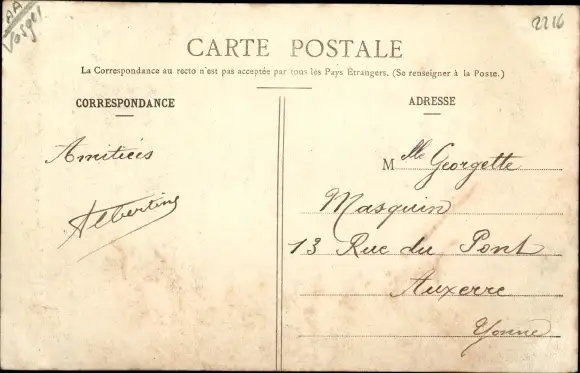 AA
Vosges
2216
CARTE POSTALE
La Correspondance au recto n'est pas acceptée par tous les Pays Étrangers. (Se renseigner à la Poste.)
CORRESPONDANCE
Amitiés
Albertine
ADRESSE
Mlle Georgette
Masquin
13 Rue du Pont
Auxerre
Yonne